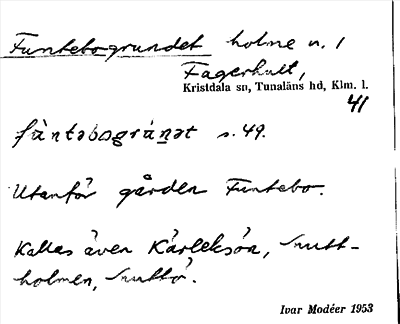 Funtebogrundet holme n. 1
Fagerhult,
Kristdala sn, Tunaläns hd, Klm. l.
41
fàntəbogránət s. 49.
Utanför gården Funtebo.
Kallas även Kärleksön, Snutt-
holmen, Snuttö.
Ivar Modéer 1953